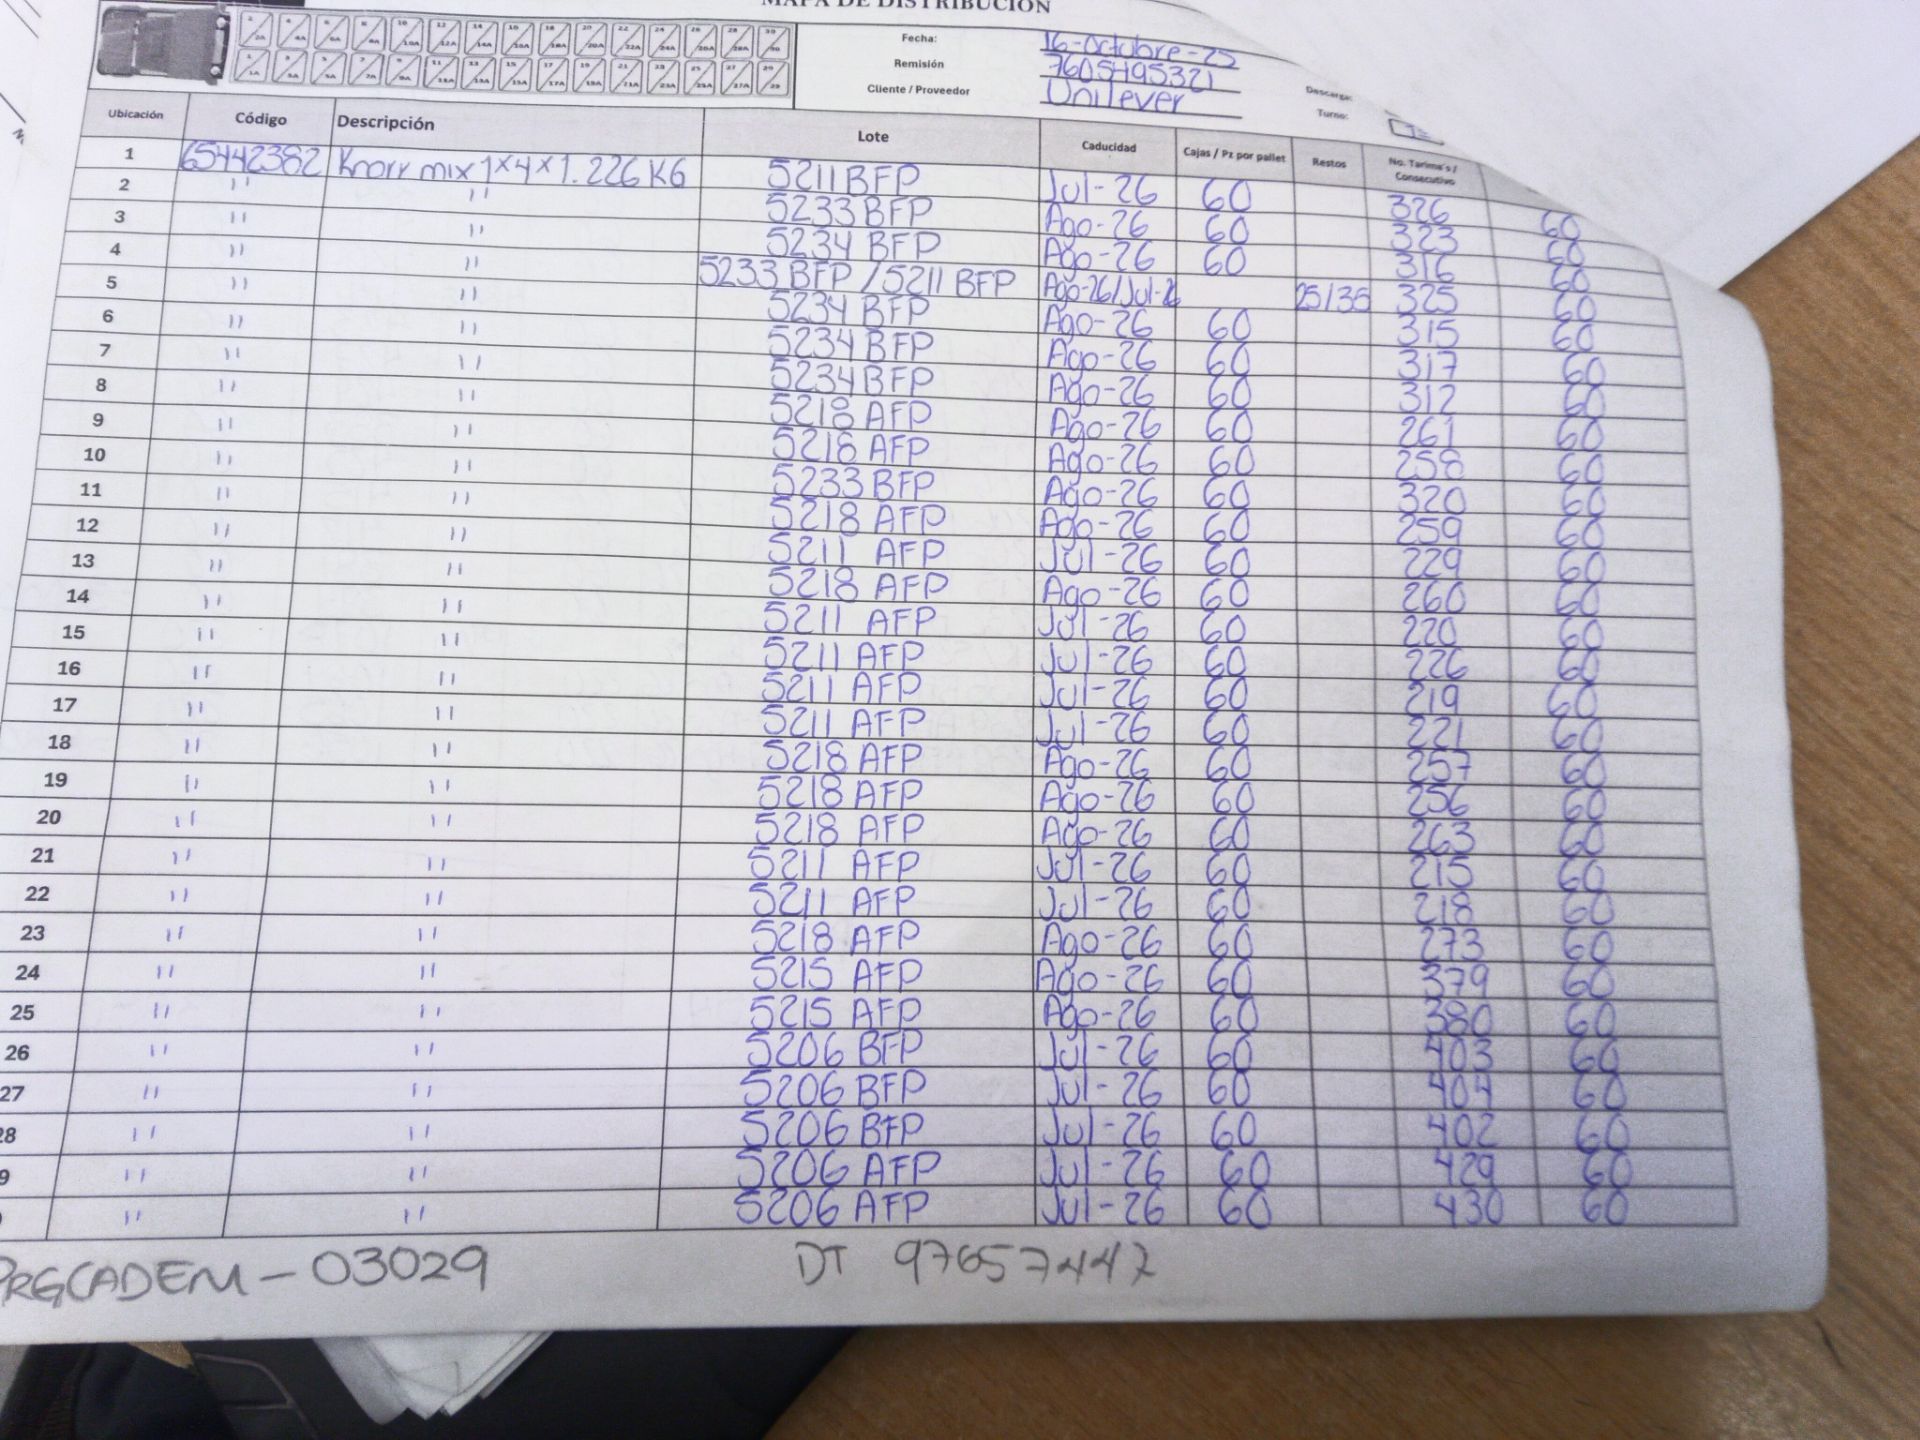 MAPA DE DISTRIBUCIÓN
Fecha: 16-octubre-25
Remisión 7605495321
Cliente / Proveedor Unilever
Descarga:
Turno:
Ubicación Código Descripción Lote Caducidad Cajas / Pz por pallet Restos No. Tarima's / Consecutivo
1 65442382 Knorr mix 1x4x1.226 KG 5211 BFP Jul-26 60 326 60
2 " " 5233 BFP Ago-26 60 323 60
3 " " 5234 BFP Ago-26 60 316 60
4 " " 5233 BFP / 5211 BFP Ago-26/Jul-26 25/35 325 60
5 " " 5234 BFP Ago-26 60 315 60
6 " " 5234 BFP Ago-26 60 317 60
7 " " 5234 BFP Ago-26 60 312 60
8 " " 5218 AFP Ago-26 60 261 60
9 " " 5218 AFP Ago-26 60 258 60
10 " " 5233 BFP Ago-26 60 320 60
11 " " 5218 AFP Ago-26 60 259 60
12 " " 5211 AFP Jul-26 60 229 60
13 " " 5218 AFP Ago-26 60 260 60
14 " " 5211 AFP Jul-26 60 220 60
15 " " 5211 AFP Jul-26 60 226 60
16 " " 5211 AFP Jul-26 60 219 60
17 " " 5211 AFP Jul-26 60 221 60
18 " " 5218 AFP Ago-26 60 257 60
19 " " 5218 AFP Ago-26 60 256 60
20 " " 5218 AFP Ago-26 60 263 60
21 " " 5211 AFP Jul-26 60 215 60
22 " " 5211 AFP Jul-26 60 218 60
23 " " 5218 AFP Ago-26 60 273 60
24 " " 5215 AFP Ago-26 60 379 60
25 " " 5215 AFP Ago-26 60 380 60
26 " " 5206 BFP Jul-26 60 403 60
27 " " 5206 BFP Jul-26 60 404 60
28 " " 5206 BFP Jul-26 60 402 60
9 " " 5206 AFP Jul-26 60 429 60
" " 5206 AFP Jul-26 60 430 60
PRGCADEM-03029 DT 97657447